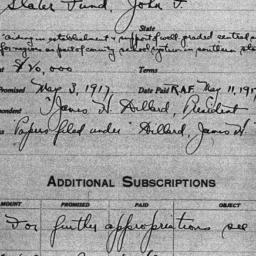 Slater Fund, John F.
State
"aiding in establishment & support of well graded central
for region as part of county school system in southern
$10,000 Terms
Promised May 3, 1917 Date Paid R.A.F. May 11, 191
"James H. Dillard, President
"Papers filed under "Dillard, James H."
ADDITIONAL SUBSCRIPTIONS
MOUNT PROMISED PAID OBJECT
For further appropriations see